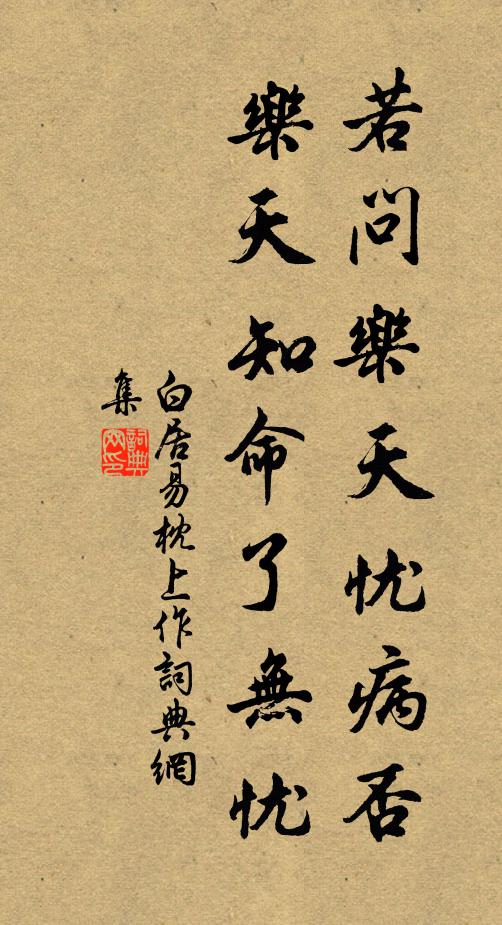 若問樂天忧病否
樂天知命了無忧
白居易枕上作詞典網
集
詞典網印